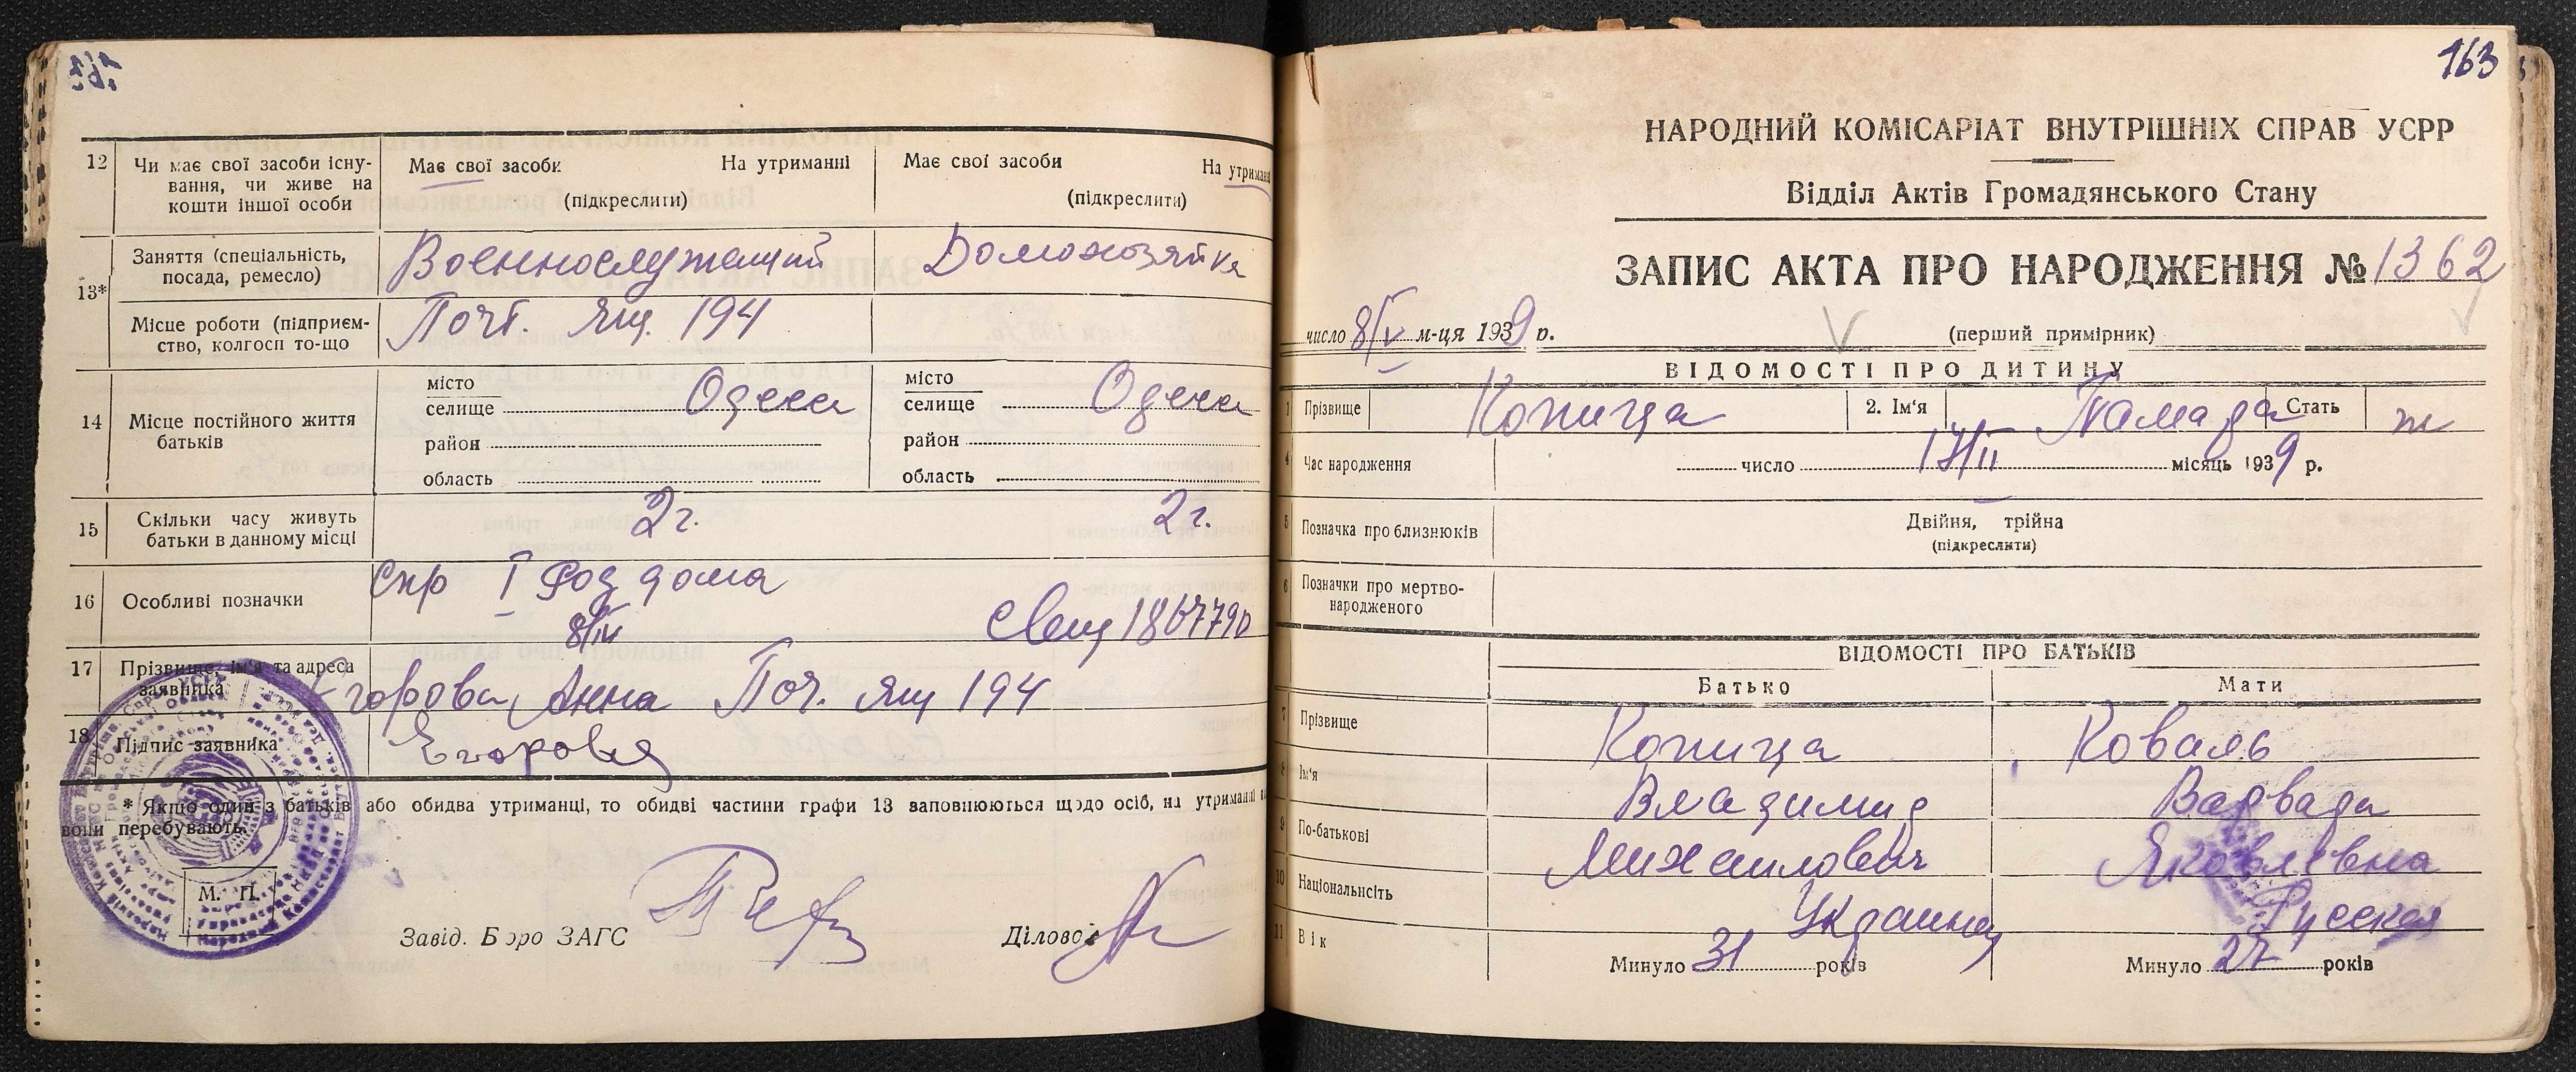 12 Чи має свої засоби існування, чи живе на кошти іншої особи
Має свої засоби На утриманні
(підкреслити)
Має свої засоби На утриманні
(підкреслити)
13* Заняття (спеціальність, посада, ремесло)
Военнослужащий Домохозяйка
Місце роботи (підприємство, колгосп то-що)
Почт. ящ. 194
14 Місце постійного життя батьків
місто селище Одесса
район
область
місто селище Одесса
район
область
15 Скільки часу живуть батьки в данному місці
2 г. 2 г.
16 Особливі позначки
Спр I Род дома
8/IV Свид 1867790
17 Прізвище, ім'я та адреса заявника
Егорова Анна Поч. ящ 194
18 Підпис заявника
Егорова
* Якщо один з батьків або обидва утриманці, то обидві частини графи 13 заповнюються щодо осіб, на утриманні
вони перебувають.
М. П.
Завід. Бюро ЗАГС
Діловод
163
НАРОДНИЙ КОМІСАРІАТ ВНУТРІШНІХ СПРАВ УСРР
Відділ Актів Громадянського Стану
ЗАПИС АКТА ПРО НАРОДЖЕННЯ № 1362
число 8/IV м-ця 1939 р.
(перший примірник)
ВІДОМОСТІ ПРО ДИТИНУ
1 Прізвище Копица 2. Ім'я Тамара Стать ж
4 Час народження число 17/II місяць 1939 р.
5 Позначка про близнюків Двійня, трійна
(підкреслити)
6 Позначки про мертвонародженого
ВІДОМОСТІ ПРО БАТЬКІВ
Батько Мати
7 Прізвище Копица Коваль
8 Ім'я Владимир Варвара
9 По-батькові Михаилович Яковлевна
10 Національність Украинец Русская
11 Вік Минуло 31 років Минуло 27 років